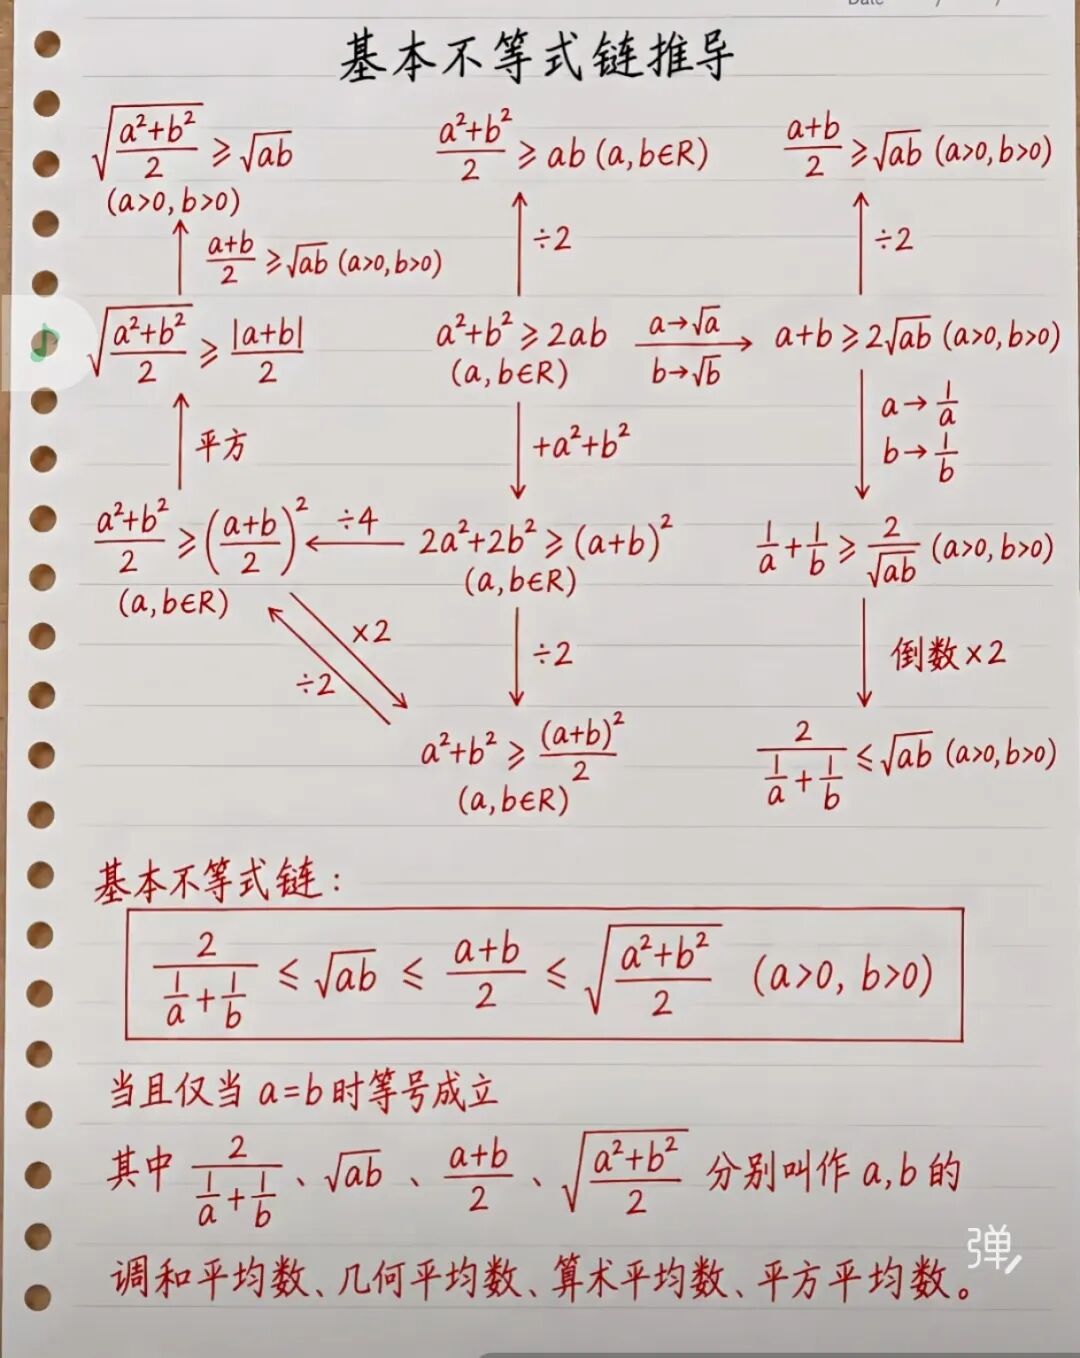 Date / /
基本不等式链推导
√((a²+b²)/2) ≥ √(ab)
(a>0, b>0)
(a²+b²)/2 ≥ ab (a,b∈R)
(a+b)/2 ≥ √(ab) (a>0, b>0)
↑ (a+b)/2 ≥ √(ab) (a>0, b>0)
↑ ÷2
↑ ÷2
√((a²+b²)/2) ≥ |a+b|/2
a²+b² ≥ 2ab
(a,b∈R)
a→√a
b→√b
→
a+b ≥ 2√(ab) (a>0, b>0)
↑ 平方
↓ +a²+b²
↓ a→1/a
b→1/b
(a²+b²)/2 ≥ ((a+b)/2)²
(a,b∈R)
← ÷4
2a²+2b² ≥ (a+b)²
(a,b∈R)
1/a + 1/b ≥ 2/√(ab) (a>0, b>0)
×2
÷2
↓ ÷2
↓ 倒数×2
a²+b² ≥ (a+b)²/2
(a,b∈R)
2/(1/a + 1/b) ≤ √(ab) (a>0, b>0)
基本不等式链：
2/(1/a + 1/b) ≤ √(ab) ≤ (a+b)/2 ≤ √((a²+b²)/2) (a>0, b>0)
当且仅当 a=b 时等号成立
其中 2/(1/a + 1/b)、√(ab)、(a+b)/2、√((a²+b²)/2) 分别叫作 a,b 的
弹
调和平均数、几何平均数、算术平均数、平方平均数。